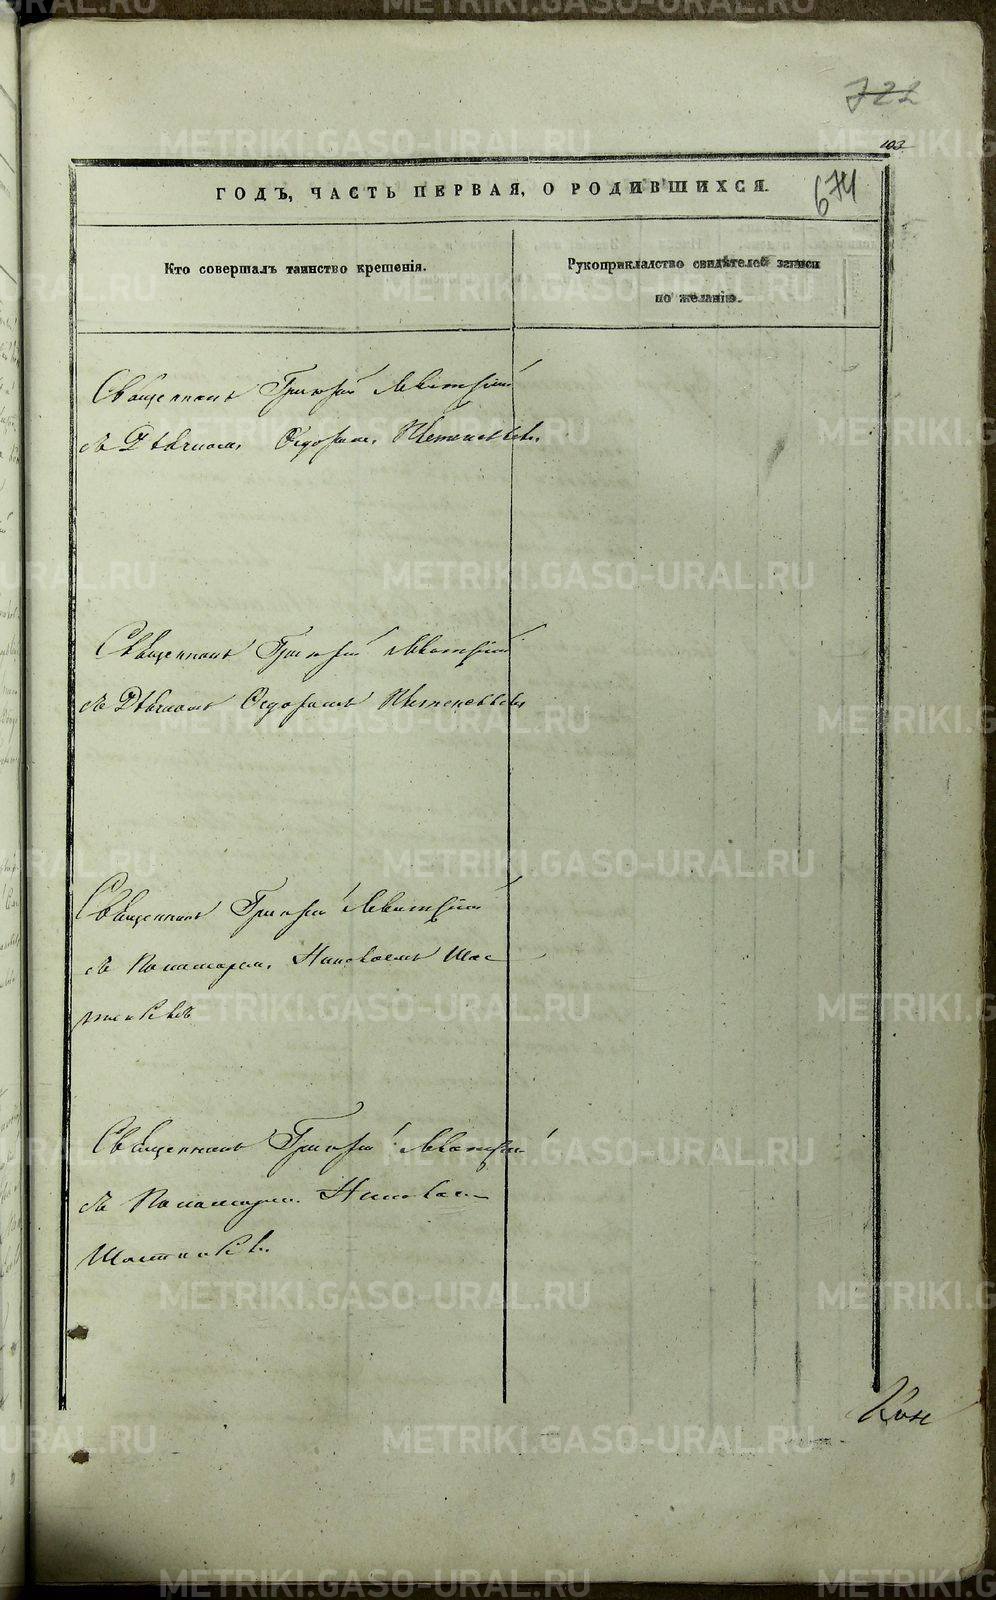 722
103
ГОДЪ, ЧАСТЬ ПЕРВАЯ, О РОДИВШИХСЯ.
674
Кто совершалъ таинство крещенія.
Рукоприкладство свидѣтелей записи
по желанію.
Священникъ Григорій Левитскій
съ Дьячкомъ Федоромъ
Священникъ Григорій Левитскій
съ Дьячкомъ Федоромъ
Священникъ Григорій Левитскій
съ Пономаремъ Николаемъ
Священникъ Григорій Левитскій
съ Пономаремъ Николаемъ
METRIKI.GASO-URAL.RU